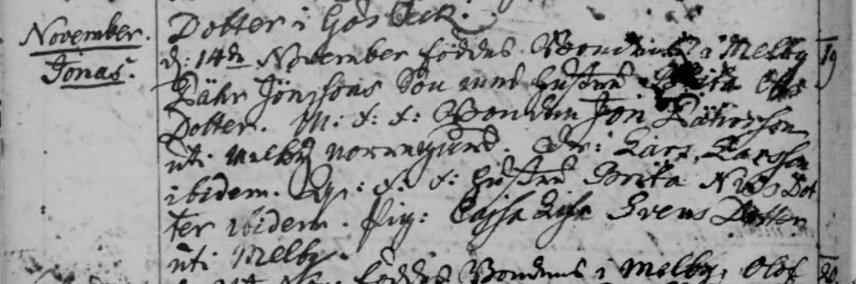 Dotter i
November. d: 14de November föddes Bondens i Melby 19
Jonas. Pähr Jönssons Son med hustru Brita Ols
Dotter. M: f: f: Bonden Jon Pährsson
uti Melby norregård. Dr: Lars Larsson
ibidem. Qv: f: f: hustru Brita Nils Dot
ter ibidem. Pig: Cajsa Lisa Svens Dotter
uti Melby.
föddes Bondens i Melby, Olof 20